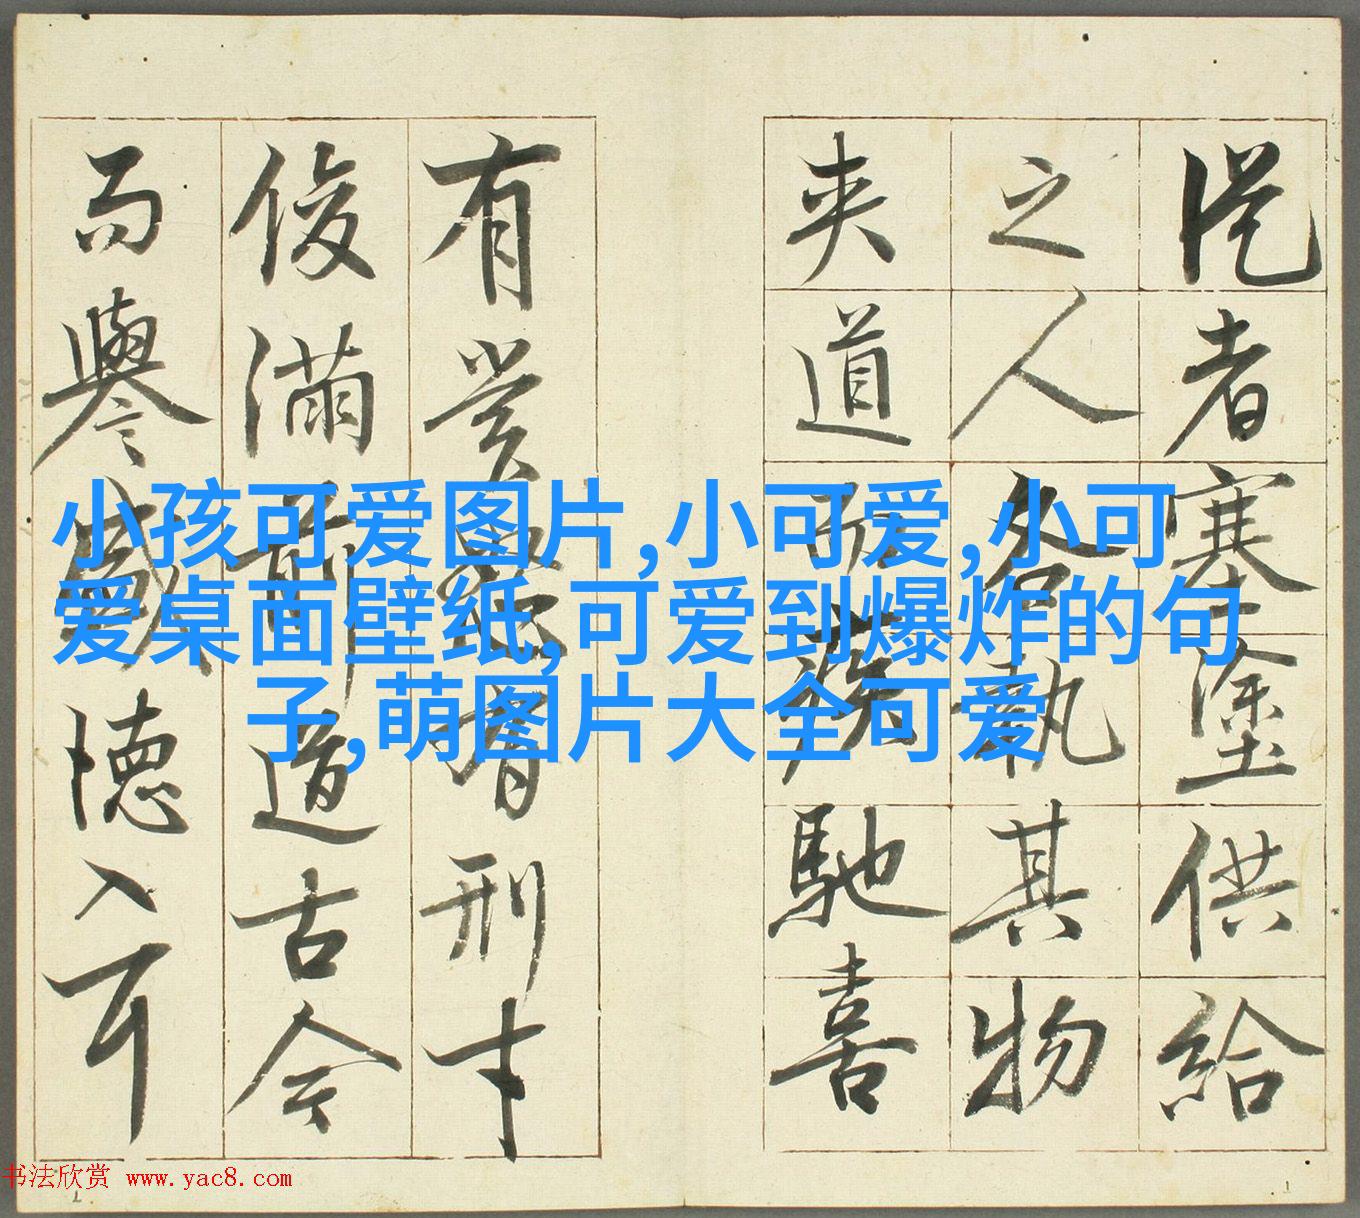 小孩可爱图片,小可爱,小可
爱桌面壁纸,可爱到爆炸的句
子,萌图片大全可爱
從者塞塗供給
之人各執其物
夾道而疾馳喜
有賞怒有刑才
俊滿前道古今
而譽盛德入耳
书法欣赏 www.yac8.com